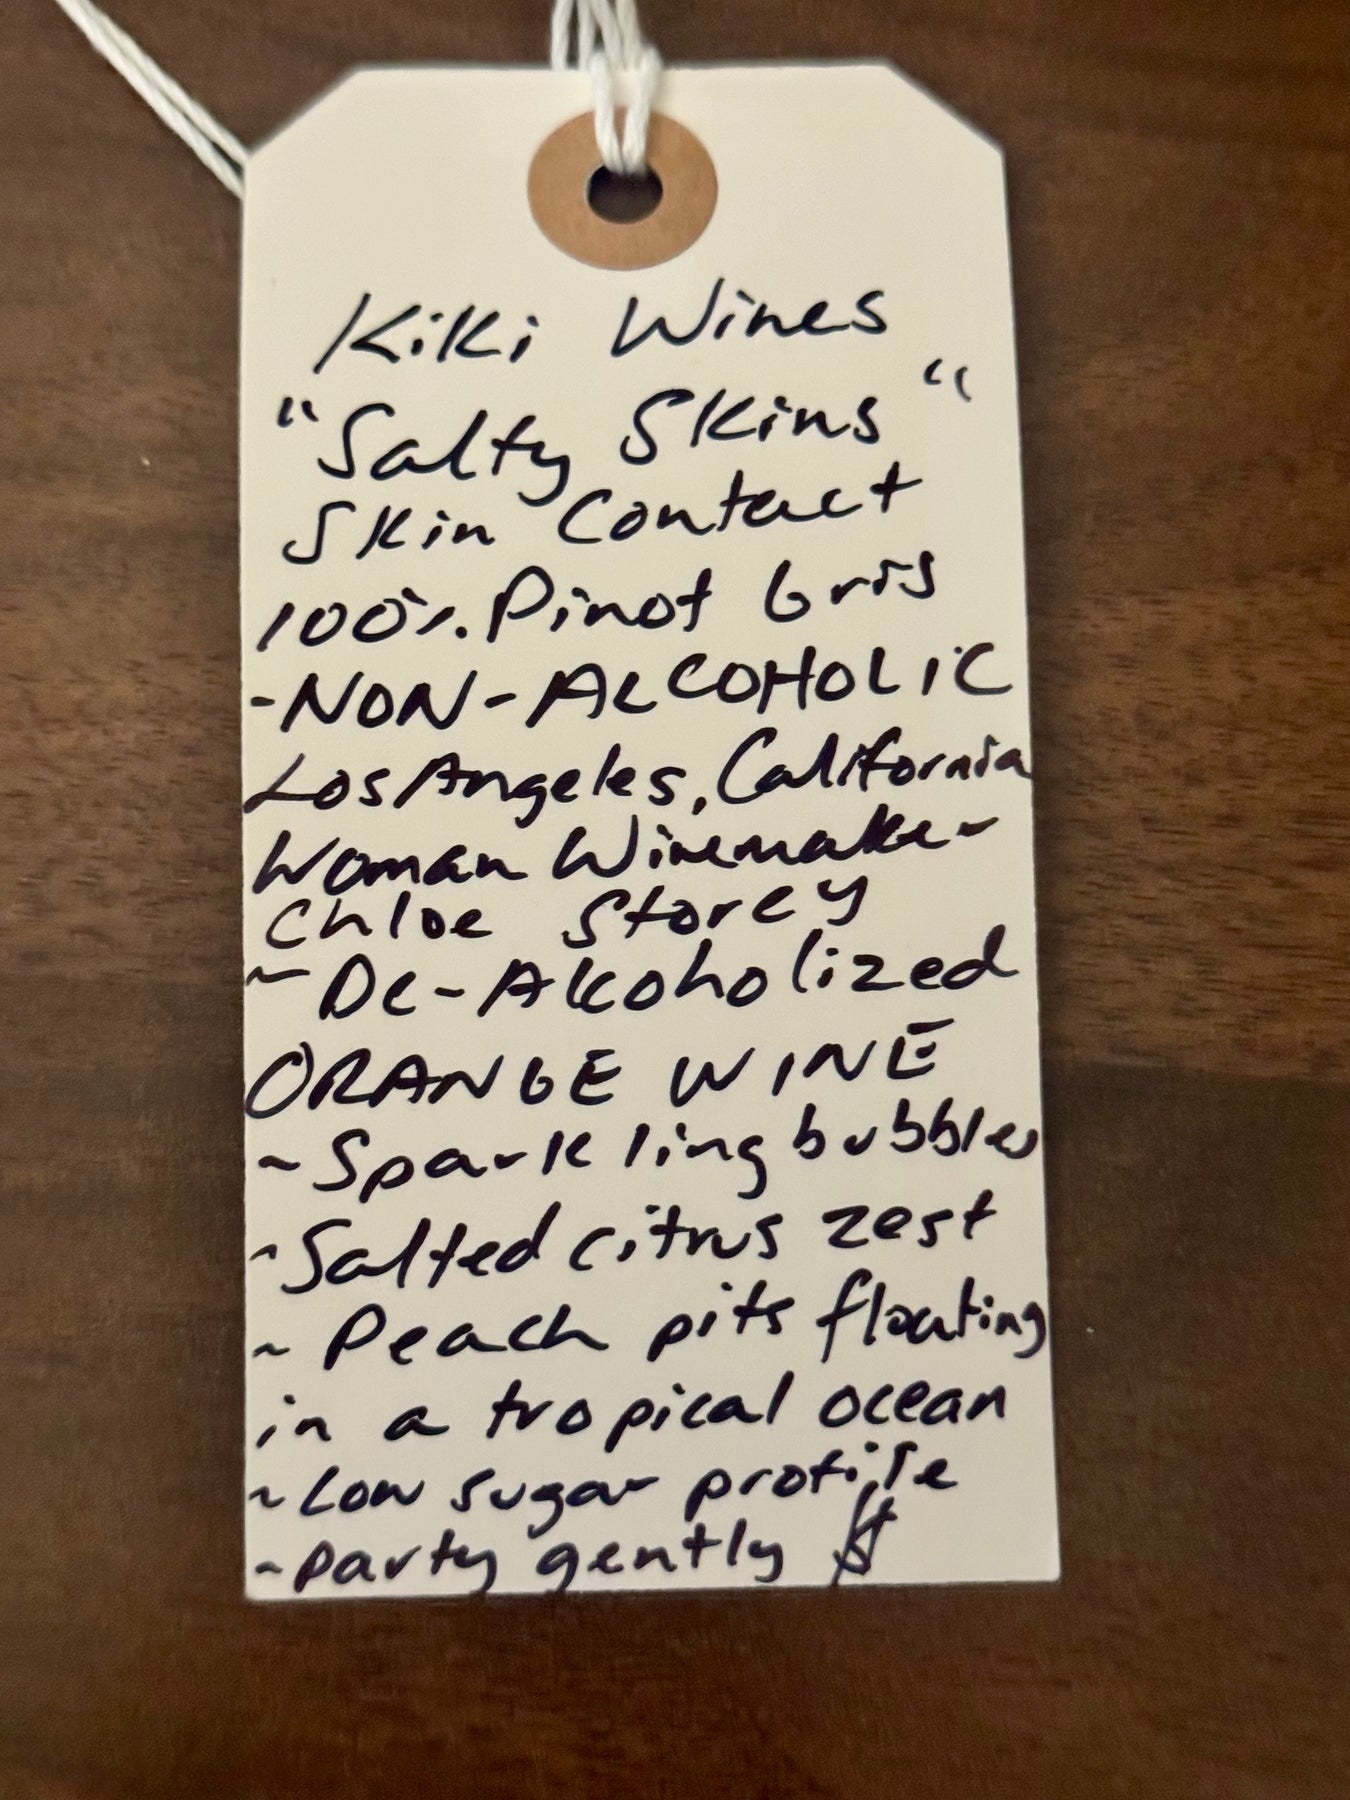 Kiki Wines
"Salty Skins"
Skin Contact
100%. Pinot Gris
-NON-ALCOHOLIC
Los Angeles, California
Woman Winemaker
Chloe Storey
~De-Alcoholized
ORANGE WINE
~Sparkling bubbles
~Salted citrus zest
~Peach pits floating
in a tropical ocean
~Low sugar profile
~party gently